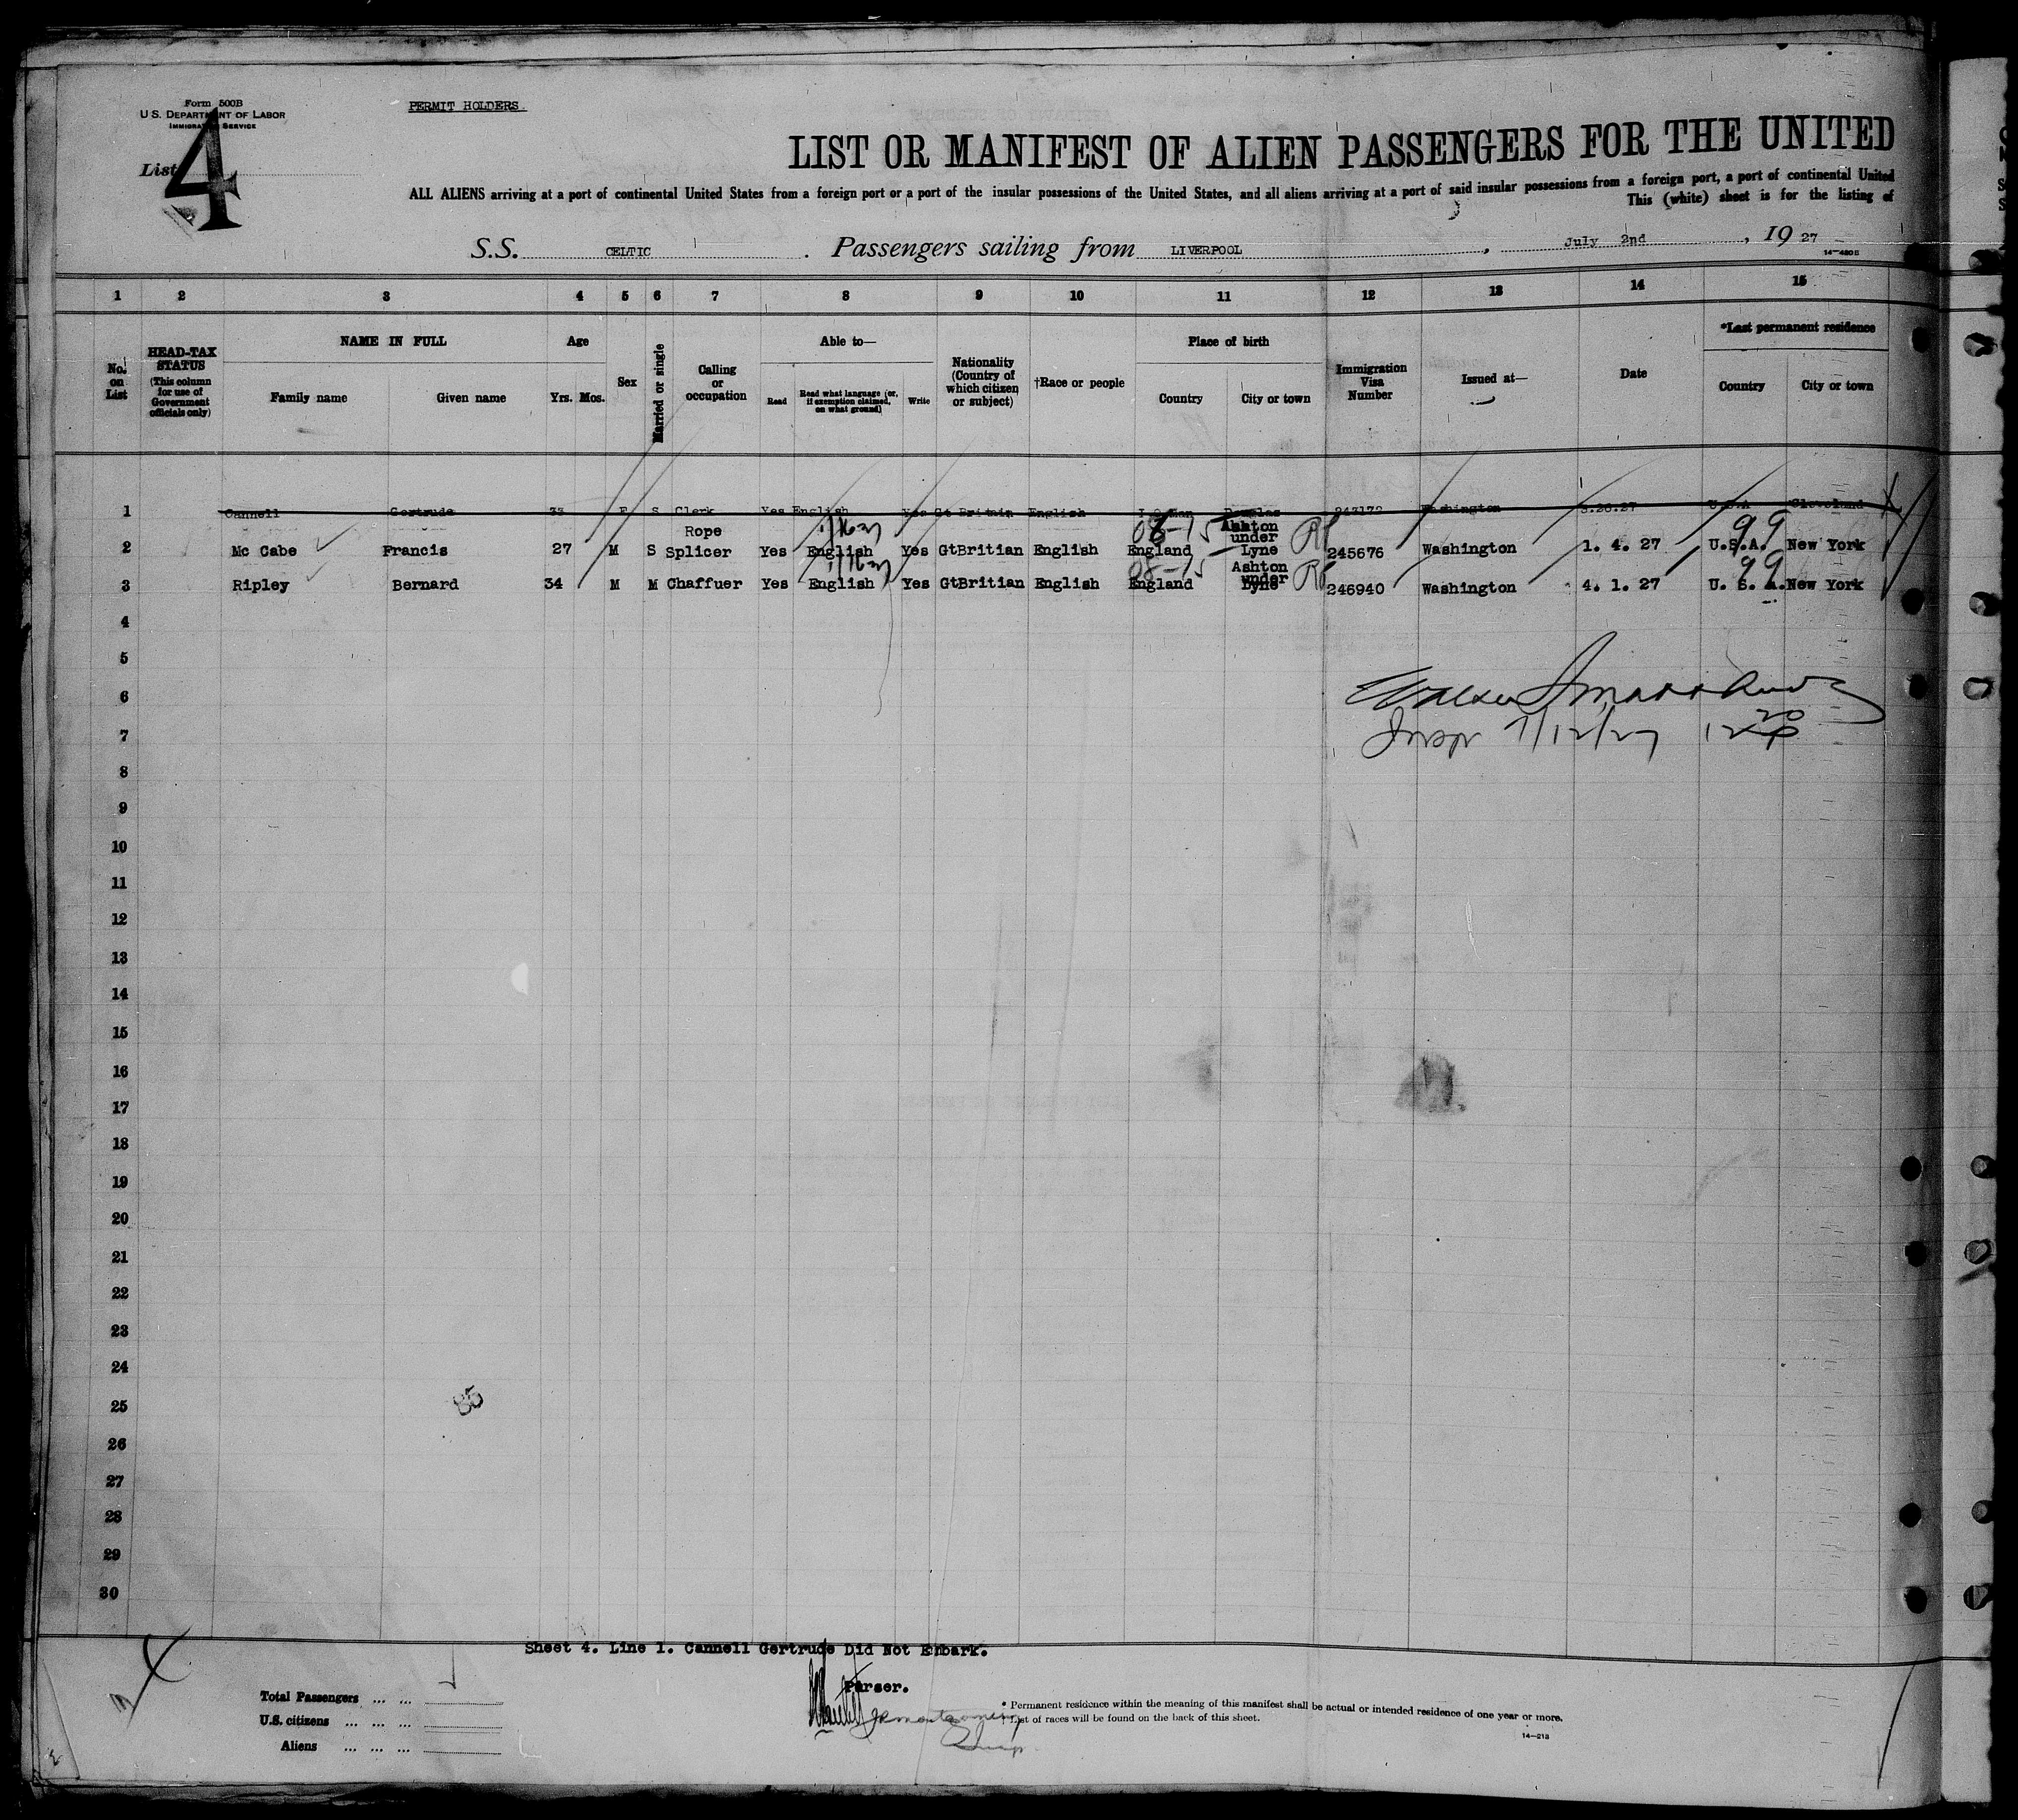 Form 500B
U.S. DEPARTMENT OF LABOR
IMMIGRATION SERVICE
PERMIT HOLDERS.
List 4
LIST OR MANIFEST OF ALIEN PASSENGERS FOR THE UNITED
ALL ALIENS arriving at a port of continental United States from a foreign port or a port of the insular possessions of the United States, and all aliens arriving at a port of said insular possessions from a foreign port, a port of continental United
This (white) sheet is for the listing of
S.S. CELTIC . Passengers sailing from LIVERPOOL , July 2nd , 19 27
1 2 3 4 5 6 7 8 9 10 11 12 13 14 15
No. on List
HEAD-TAX STATUS
(This column for use of Government officials only)
NAME IN FULL
Family name Given name
Age
Yrs. Mos.
Sex
Married or single
Calling or occupation
Able to—
Read
Read what language (or, if exemption claimed, on what ground)
Write
Nationality (Country of which citizen or subject)
†Race or people
Place of birth
Country City or town
Immigration Visa Number
Issued at—
Date
*Last permanent residence
Country City or town
1 Cannell Gertrude 33 F S Clerk Yes English Yes Gt Britain English I.O.Man Douglas 243172 Washington U.S.A Cleveland
2 Mc Cabe Francis 27 M S Rope Splicer Yes English Yes GtBritian English England Ashton under Lyne 245676 Washington 1. 4. 27 U.S.A. New York
08-15 99
3 Ripley Bernard 34 M M Chaffuer Yes English Yes GtBritian English England Ashton under Lyne 246940 Washington 4. 1. 27 U. S. A. New York
08-15 99
4
5
6
7
Insp 7/12/27 12 20 P
8
9
10
11
12
13
14
15
16
17
18
19
20
21
22
23
24
25
85
26
27
28
29
30
Sheet 4. Line 1. Cannell Gertrude Did Not Embark.
Purser.
Total Passengers ... ...
U.S. citizens ... ... ...
Aliens ... ... ...
* Permanent residence within the meaning of this manifest shall be actual or intended residence of one year or more.
† List of races will be found on the back of this sheet.
14—213